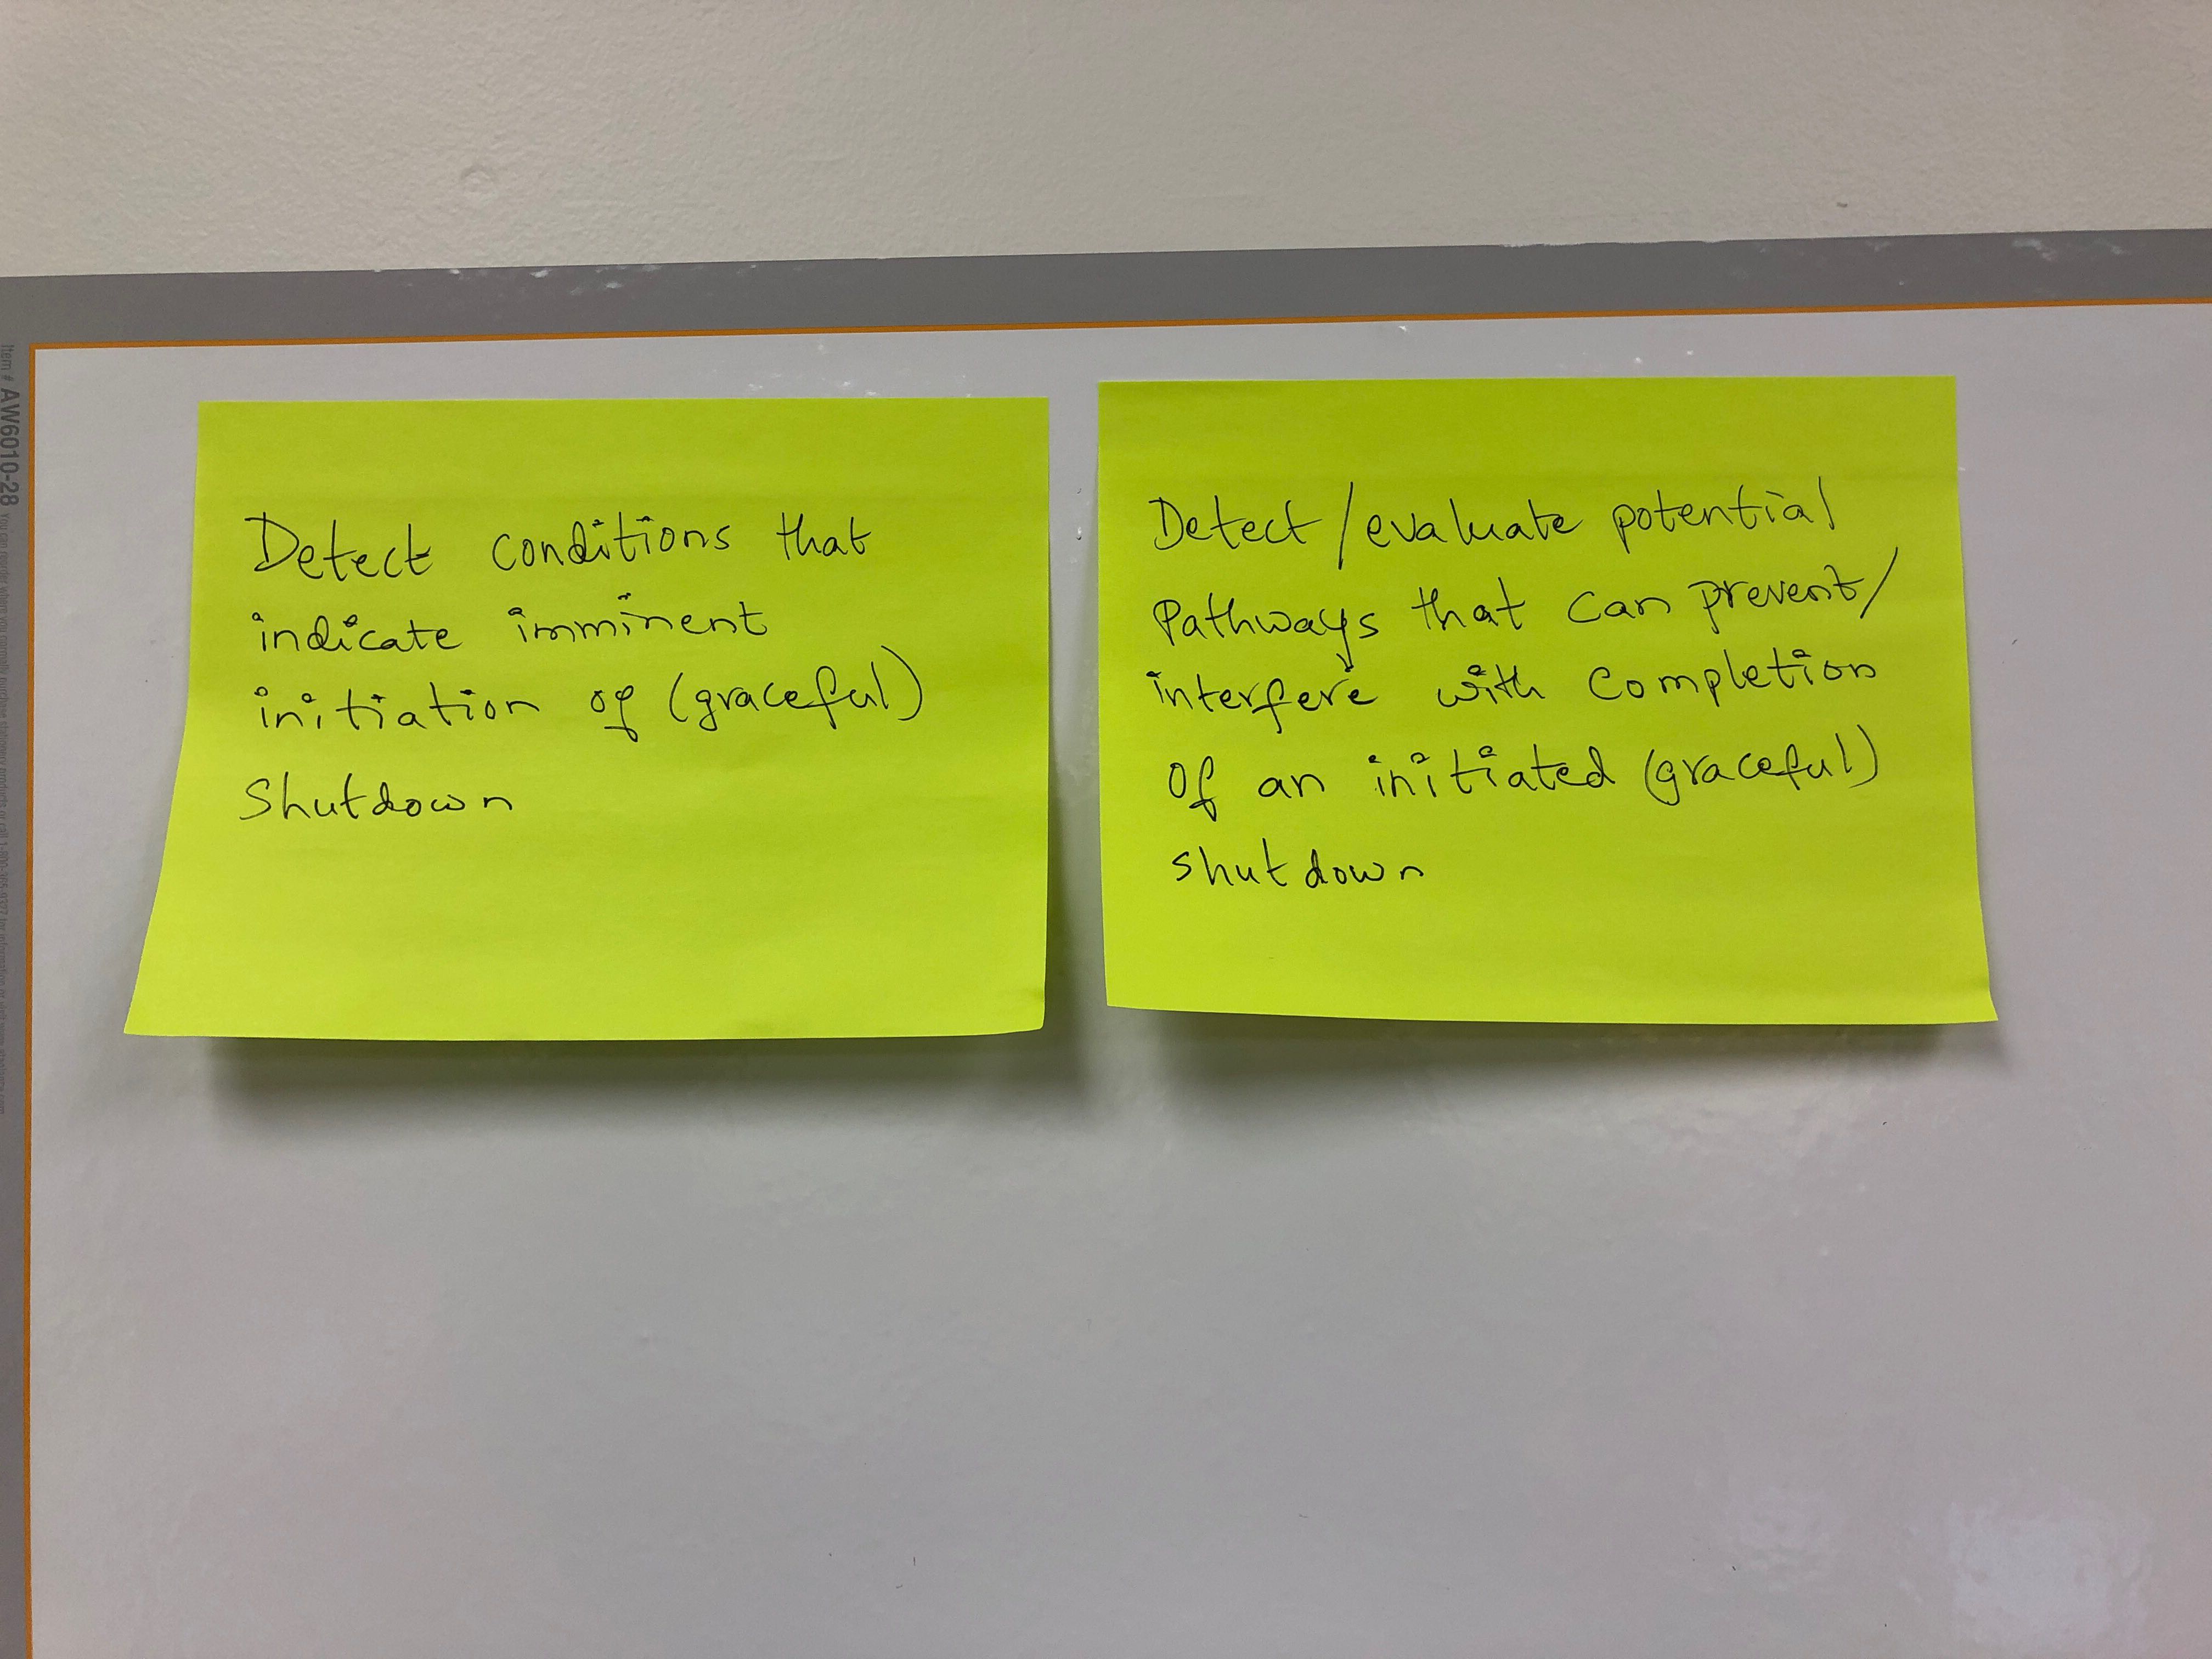 Detect conditions that
indicate imminent
initiation of (graceful)
Shutdown
Detect/evaluate potential
Pathways that can prevent/
interfere with Completion
Of an initiated (graceful)
shutdown
Item # AW6010-28